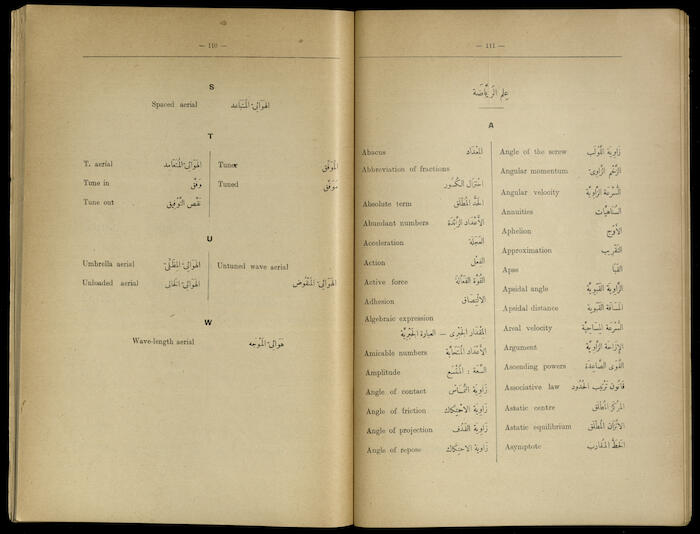 — 110 —
S
Spaced aerial الهوائى المتباعد
T
T. aerial الهوائى المتعامد
Tune in وَفّق
Tune out نقص التوفيق
Tuner الموَفّق
Tuned مُوَفّق
U
Umbrella aerial الهوائى المظلّى
Unloaded aerial الهوائى الخالى
Untuned wave aerial
الهوائى المنقوض
W
Wave-length aerial هوائى الموجه
— 111 —
علم الرياضة
A
Abacus المعداد
Abbreviation of fractions
اختزال الكسور
Absolute term الحد المطلق
Abundant numbers الأعداد الزائدة
Acceleration العجلة
Action الفعل
Active force القوة الفعالة
Adhesion الالتصاق
Algebraic expression
المقدار الجبرى — العبارة الجبرية
Amicable numbers الأعداد المتحابة
Amplitude السعة : المتسع
Angle of contact زاوية التماس
Angle of friction زاوية الاحتكاك
Angle of projection زاوية القذف
Angle of repose زاوية الاحتكاك
Angle of the screw زاوية اللولب
Angular momentum الزخم الزاوى
Angular velocity السرعة الزاوية
Annuities السناهيات
Aphelion الأوج
Approximation التقريب
Apse القبا
Apsidal angle الزاوية القبوية
Apsidal distance المسافة القبوية
Areal velocity السرعة المساحية
Argument الإزاحة الزاوية
Ascending powers القوى الصاعدة
Associative law قانون ترتيب الحدود
Astatic centre المركز المطلق
Astatic equilibrium الاتزان المطلق
Asymptote الخط المقارب